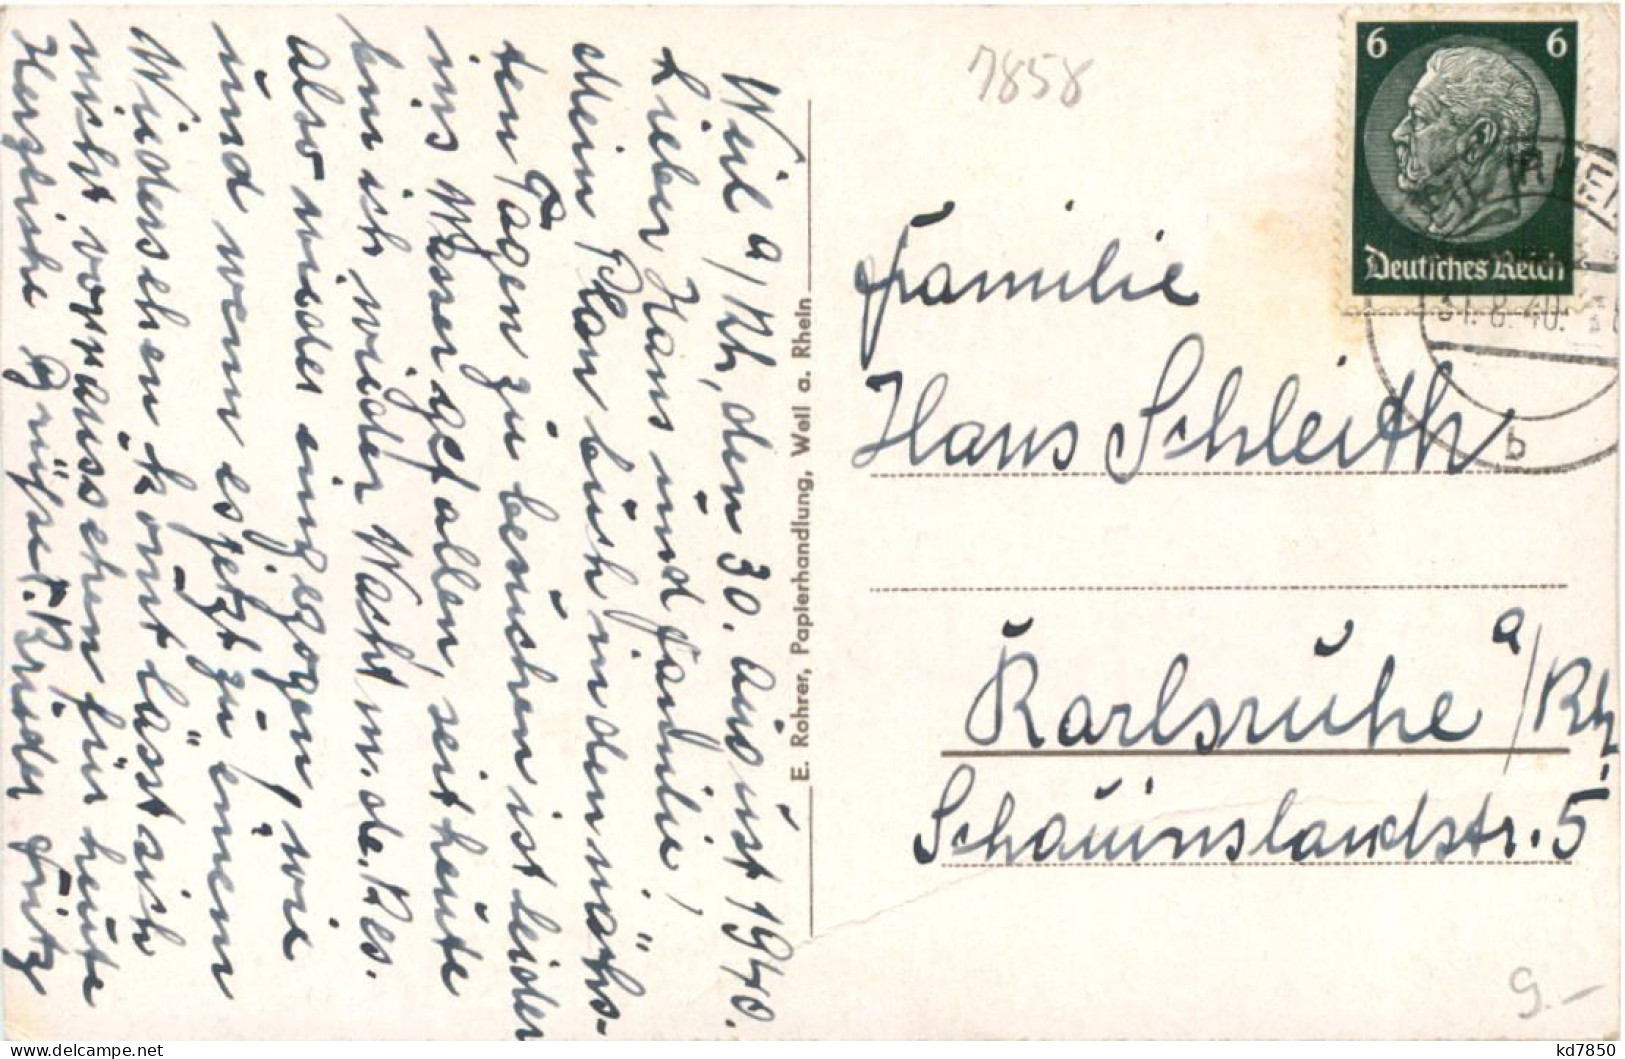 Weil a/Rh, den 30. August 1940.
Lieber Hans und Familie,
Mein Plan euch in den nächs-
ten Tagen zu besuchen ist leider
ins Wasser gefallen, seit heute
bin ich wider Wachtm. de. Res.
also wider eingezogen, wie
und wenn es jetzt zu einem
Widersehen kömt lässt sich
nicht vorraussehen für heute
Herzliche Grüsse. Brüder Fritz
E. Rohrer, Papierhandlung, Weil a. Rhein
7858
6 6
Deutsches Reich
31.8.40.
b
Familie
Hans Schleith
Karlsruhe a/Rh
Schauinslandstr. 5
9.–
kd7850